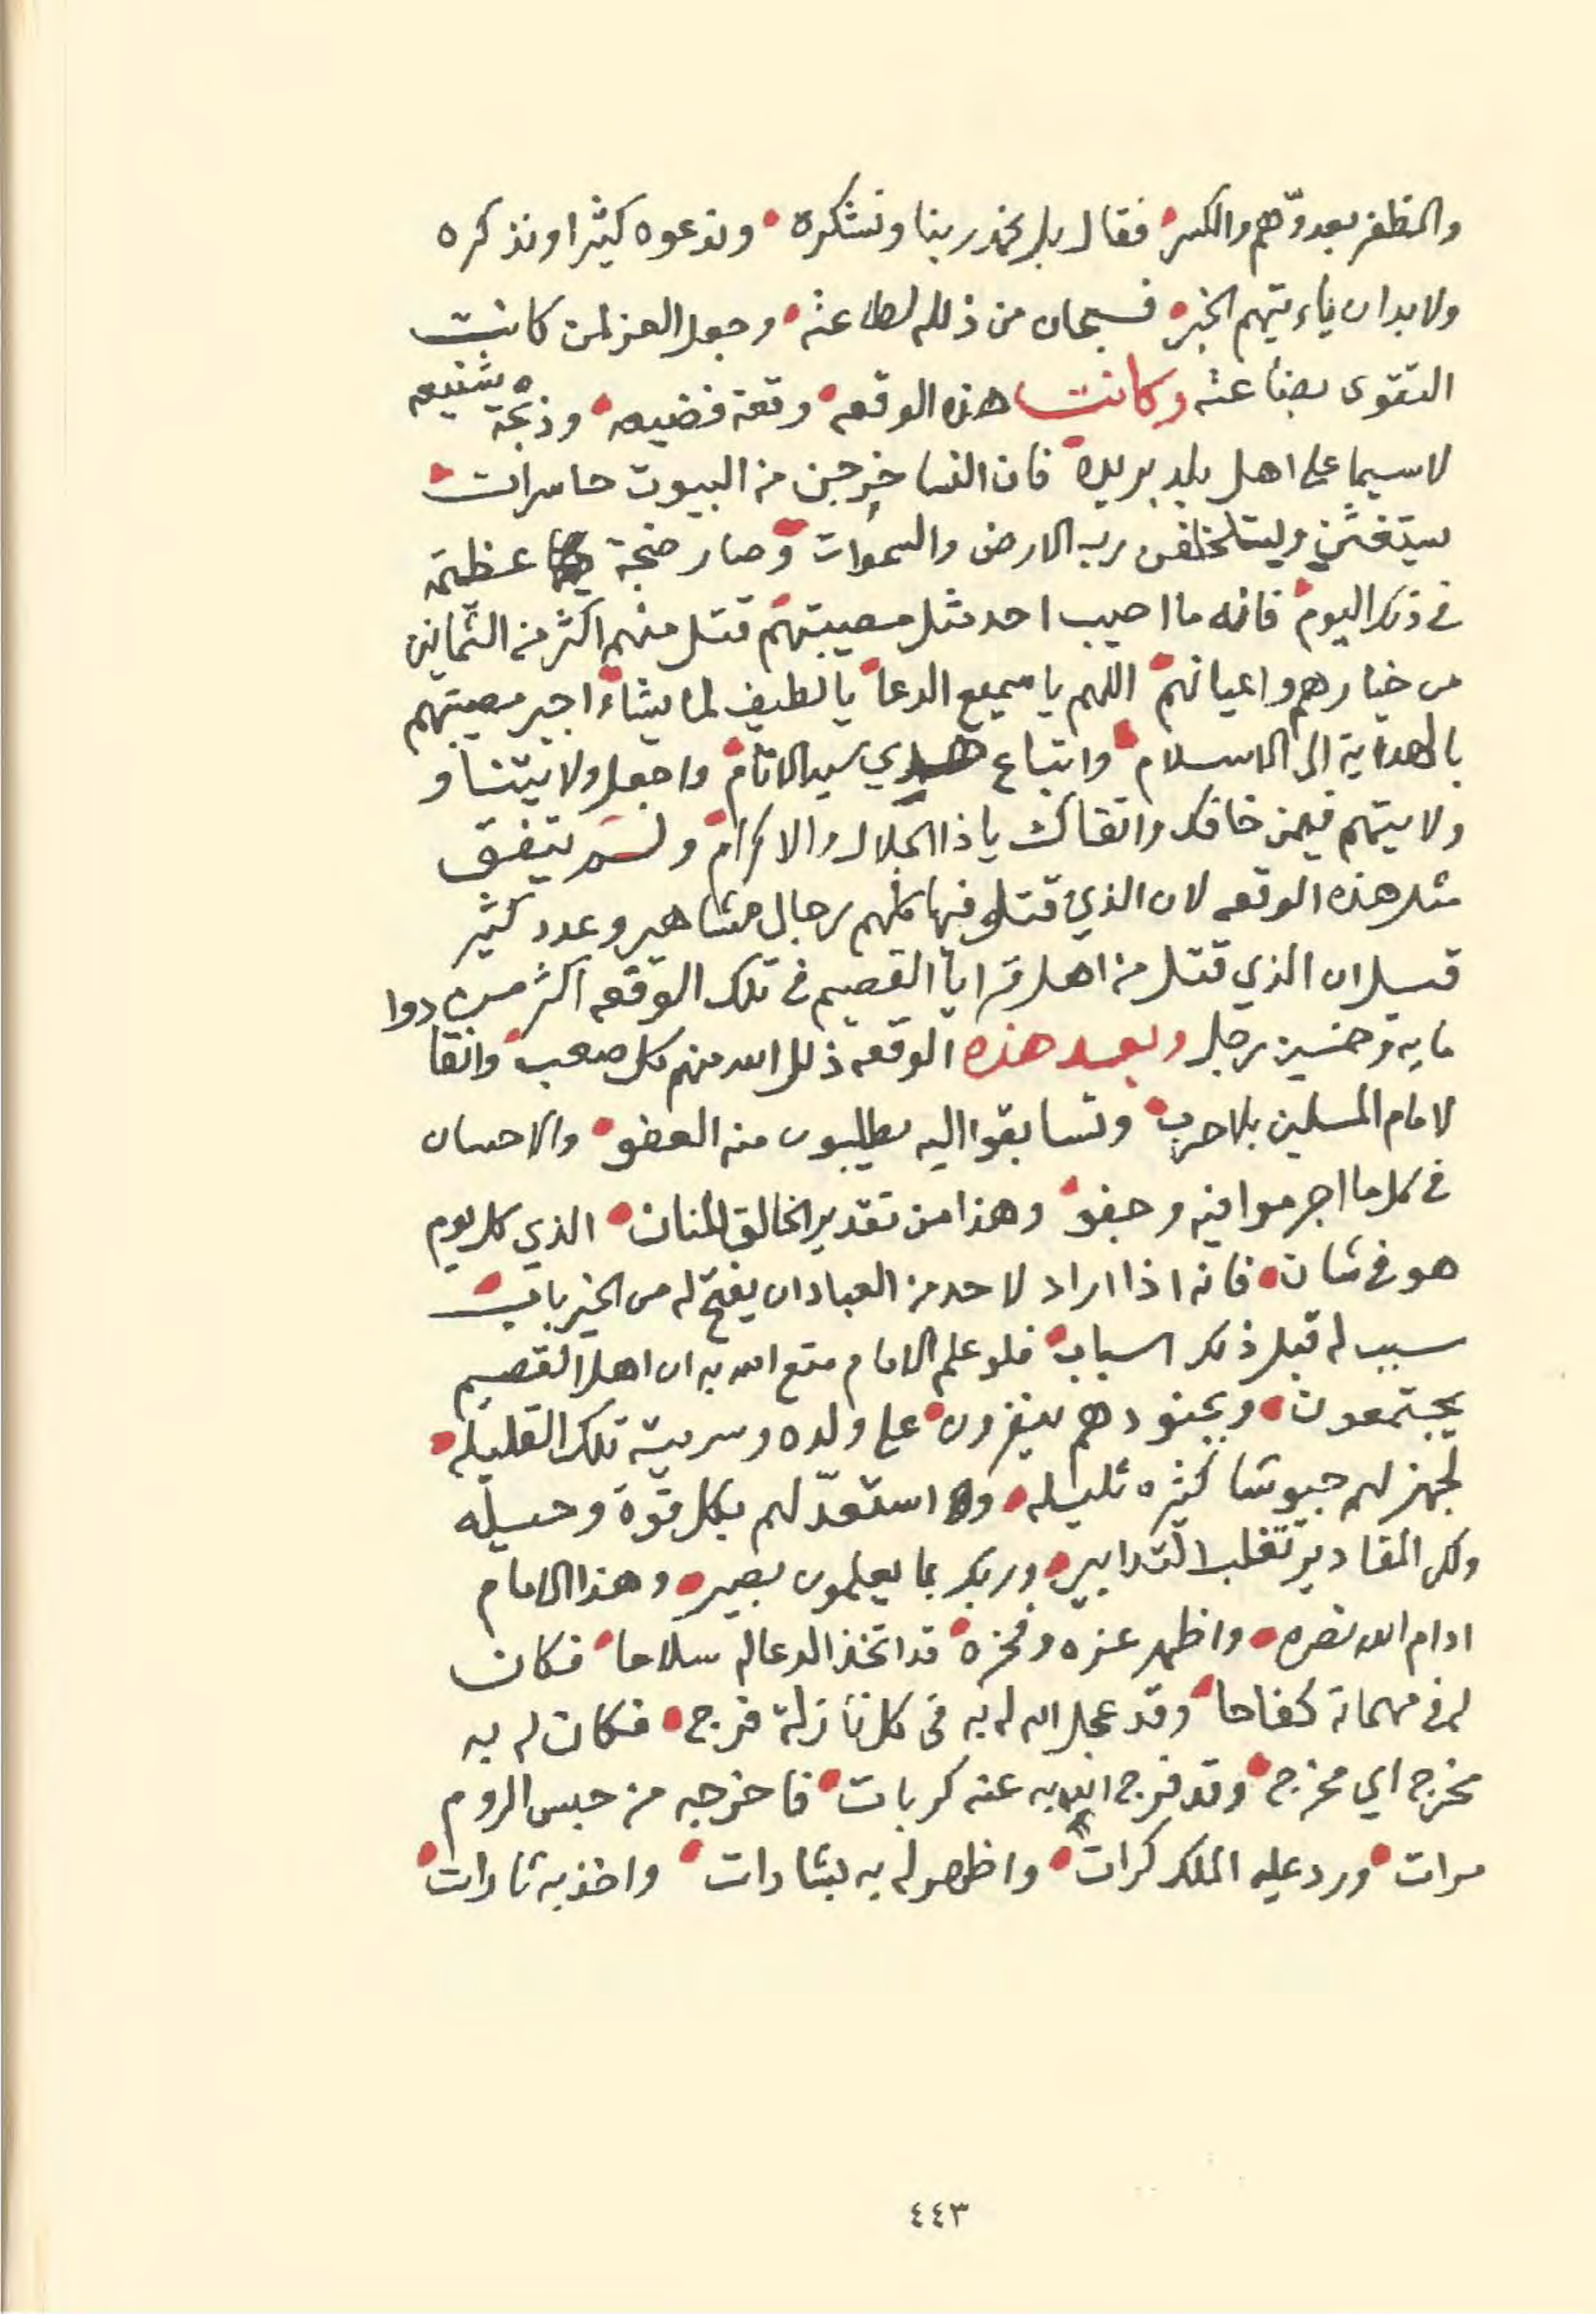 والمظفر بعدوّهم والكسر فقال بل نحمد ربنا ونشكره وندعوه كثيرا ونذكره
ولا بد ان ياءتيهم الخبر فسبحان من ذلله لطاعته وجعل العز لمن كانت
التقوى بضاعته وكانت هذه الوقعه وقعة فضيعه وذبحة شنيعه
لاسيما على اهل بلد بريده فان النسا خرجن من البيوت حاسرات
يستغثن وليتلخلفن رب الارض والسموات وصار ضجة عظيمة
في ذلك اليوم فانه ما اصيب احد مثل مصيبتهم قتل منهم اكثر من الثمانين
من خيارهم واعيانهم اللهم يا سميع الدعا يا لطيف لما يشاء اجبر مصيبتهم
بالهداية الى الاسلام واتباع هدي سيد الانام واجعل ولايتنا و
ولايتهم فيمن خافك واتقاك يا ذا الجلال والاكرام ولم يتفق
مثل هذه الوقعه لان الذي قتلو فيها كلهم رجال مشاهير وعدد كثير
قيل ان الذي قتل من اهل قرايا القصيم في تلك الوقعه اكثر من
ماية وخمسين رجل وبعد هذه الوقعه ذلل الله منهم كل صعب وانقادوا
لامام المسلمين بلا حرب وتسابقوا اليه يطلبون منه العفو والاحسان
في كل ما اجرموا فيه وجفو وهذا من تقدير الخالق المنان الذي كل يوم
هو في شان فانه اذا اراد لاحد من العباد ان يفتح له من الخير باب
سبب له قبل ذلك اسباب فلو علم الامام متع الله به ان اهل القصيم
يجتمعون وبجنودهم يغزون على ولده وسريته تلك القليله
لجهز لهم جيوشا كثيره ثليله واستعدّ لهم بكل قوة وحيله
ولكن المقادير تغلب التدابير وربك بما يعلمون بصير وهذا الامام
ادام الله نصره واظهر عزه وفخره قد اتخذ الدعا له سلاحا فكان
له في مهماته كفاحا وقد عجل الله له به في كل نازلة فرج فكان له به
مخرج اي مخرج وقد فرج الله به عنه كربات فاخرجه من حبس الروم
مرات ورد عليه الملك كرات واظهر له به بشارات واخذ به ثارات
٤٤٣